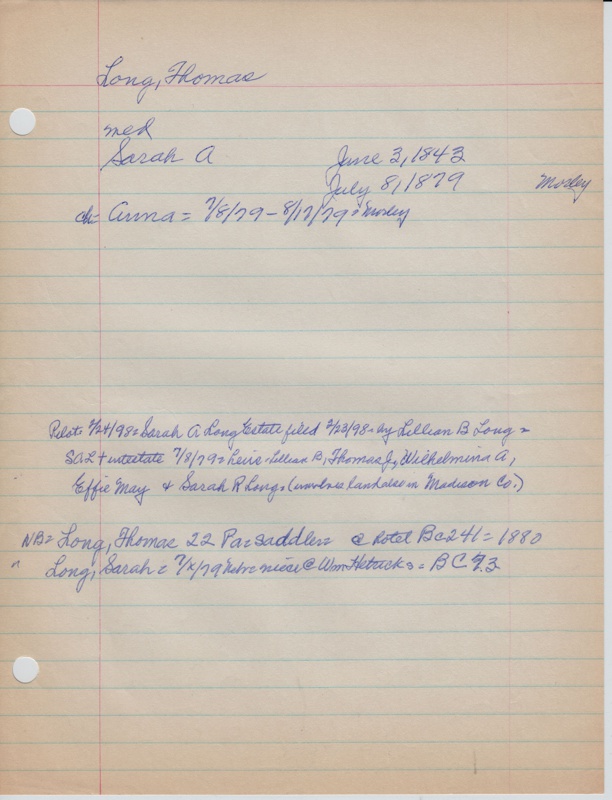 Long, Thomas
med
Sarah A June 3, 1843
July 8, 1879 Mosley
ch= Anna = 7/8/79 - 8/17/79 = Mosley
Pilot: 2/24/98 = Sarah A Long Estate filed 2/23/98 = by Lillian B Long =
SAL + intestate 7/8/79 = heirs = Lillian B, Thomas J, Wilhelmina A,
Effie May & Sarah R Long = (involves land also in Madison Co.)
NB = Long, Thomas 22 Pa = saddler = @ hotel BC 241 = 1880
" Long, Sarah = 7/x/79 Nebr = niece @ Wm = BC 93